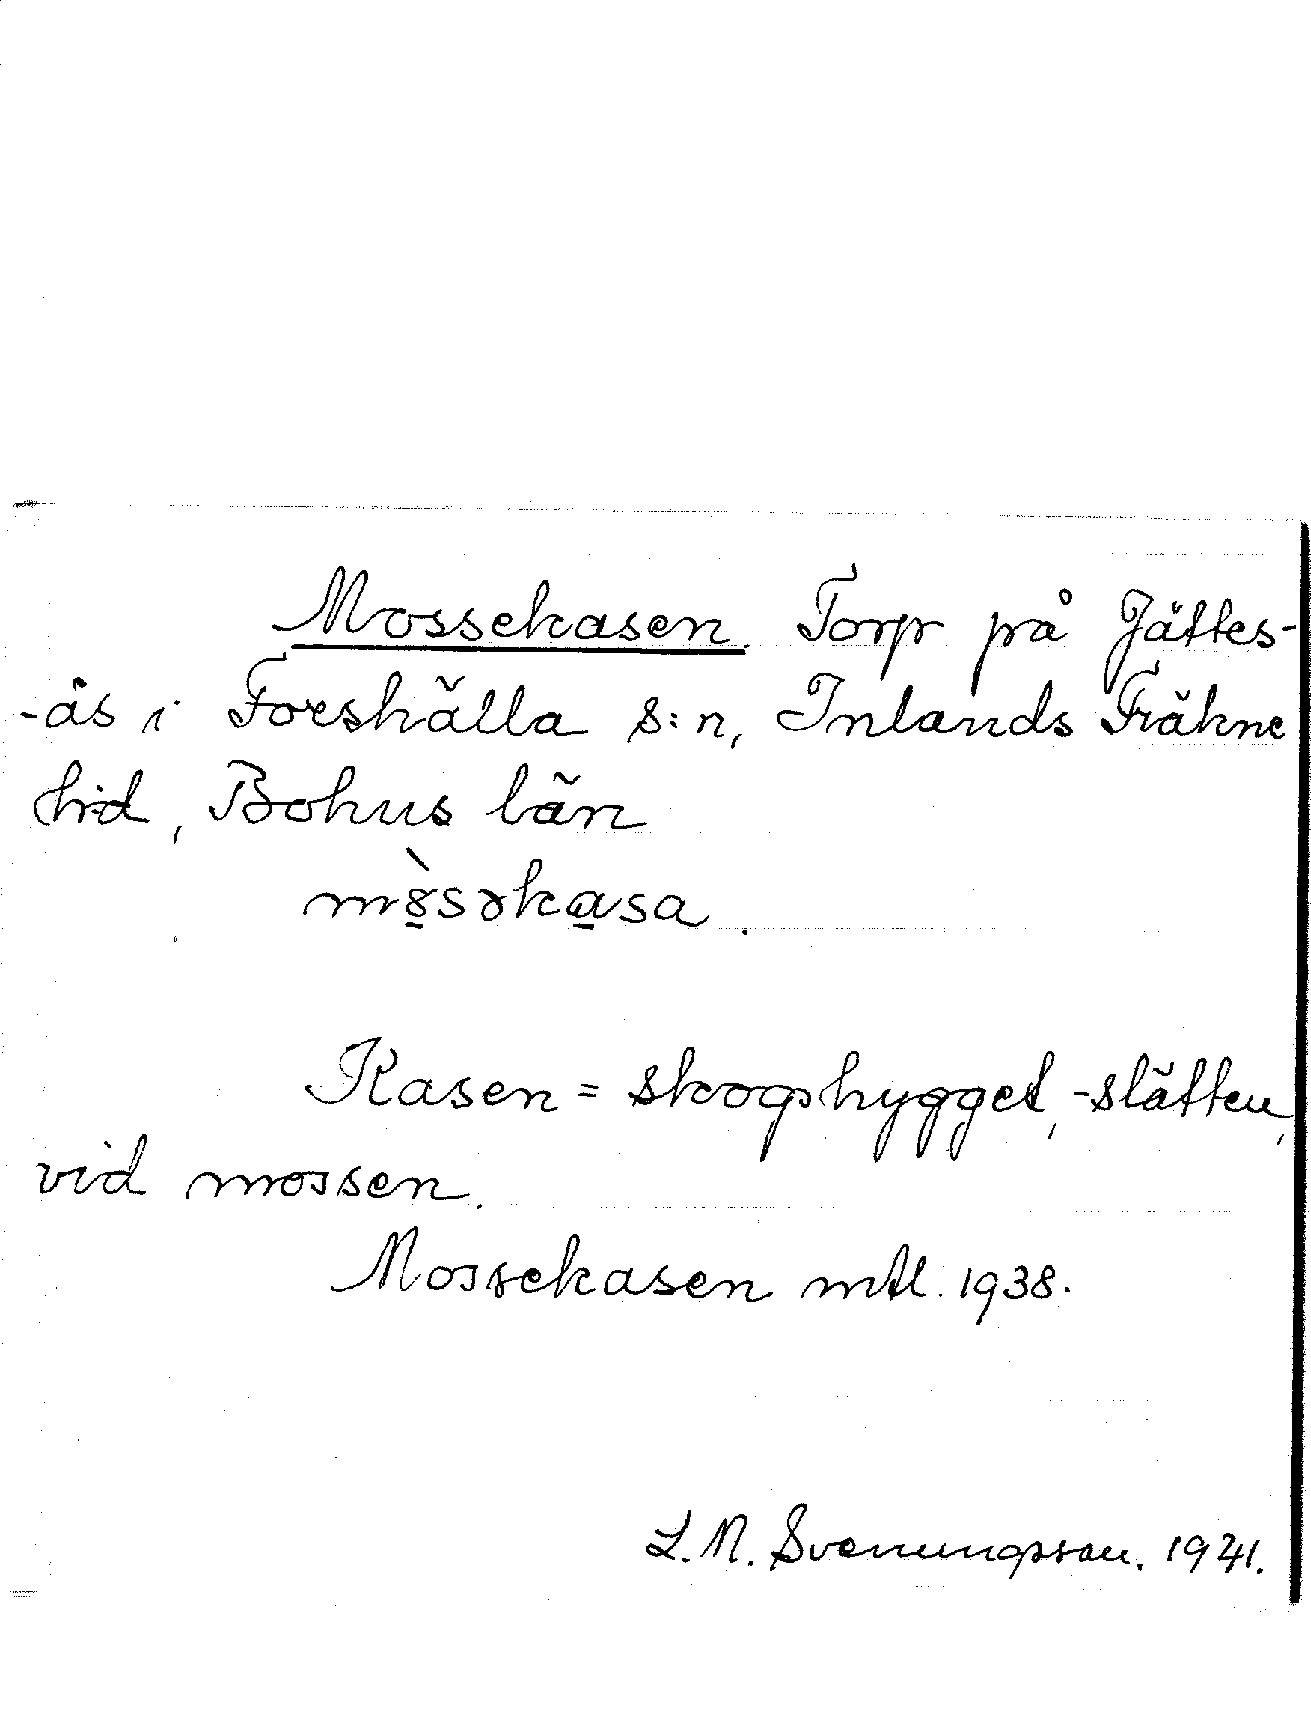 Mossekasen. Torp på Jättes-
-ås i Foreshälla s:n, Inlands Fräkne
hrd, Bohus län
mò̱səka̱sa.
Kasen = skogshygget, -slätten,
vid mossen.
Mossekasen mtl. 1938.
L. N. Svenungsson. 1941.